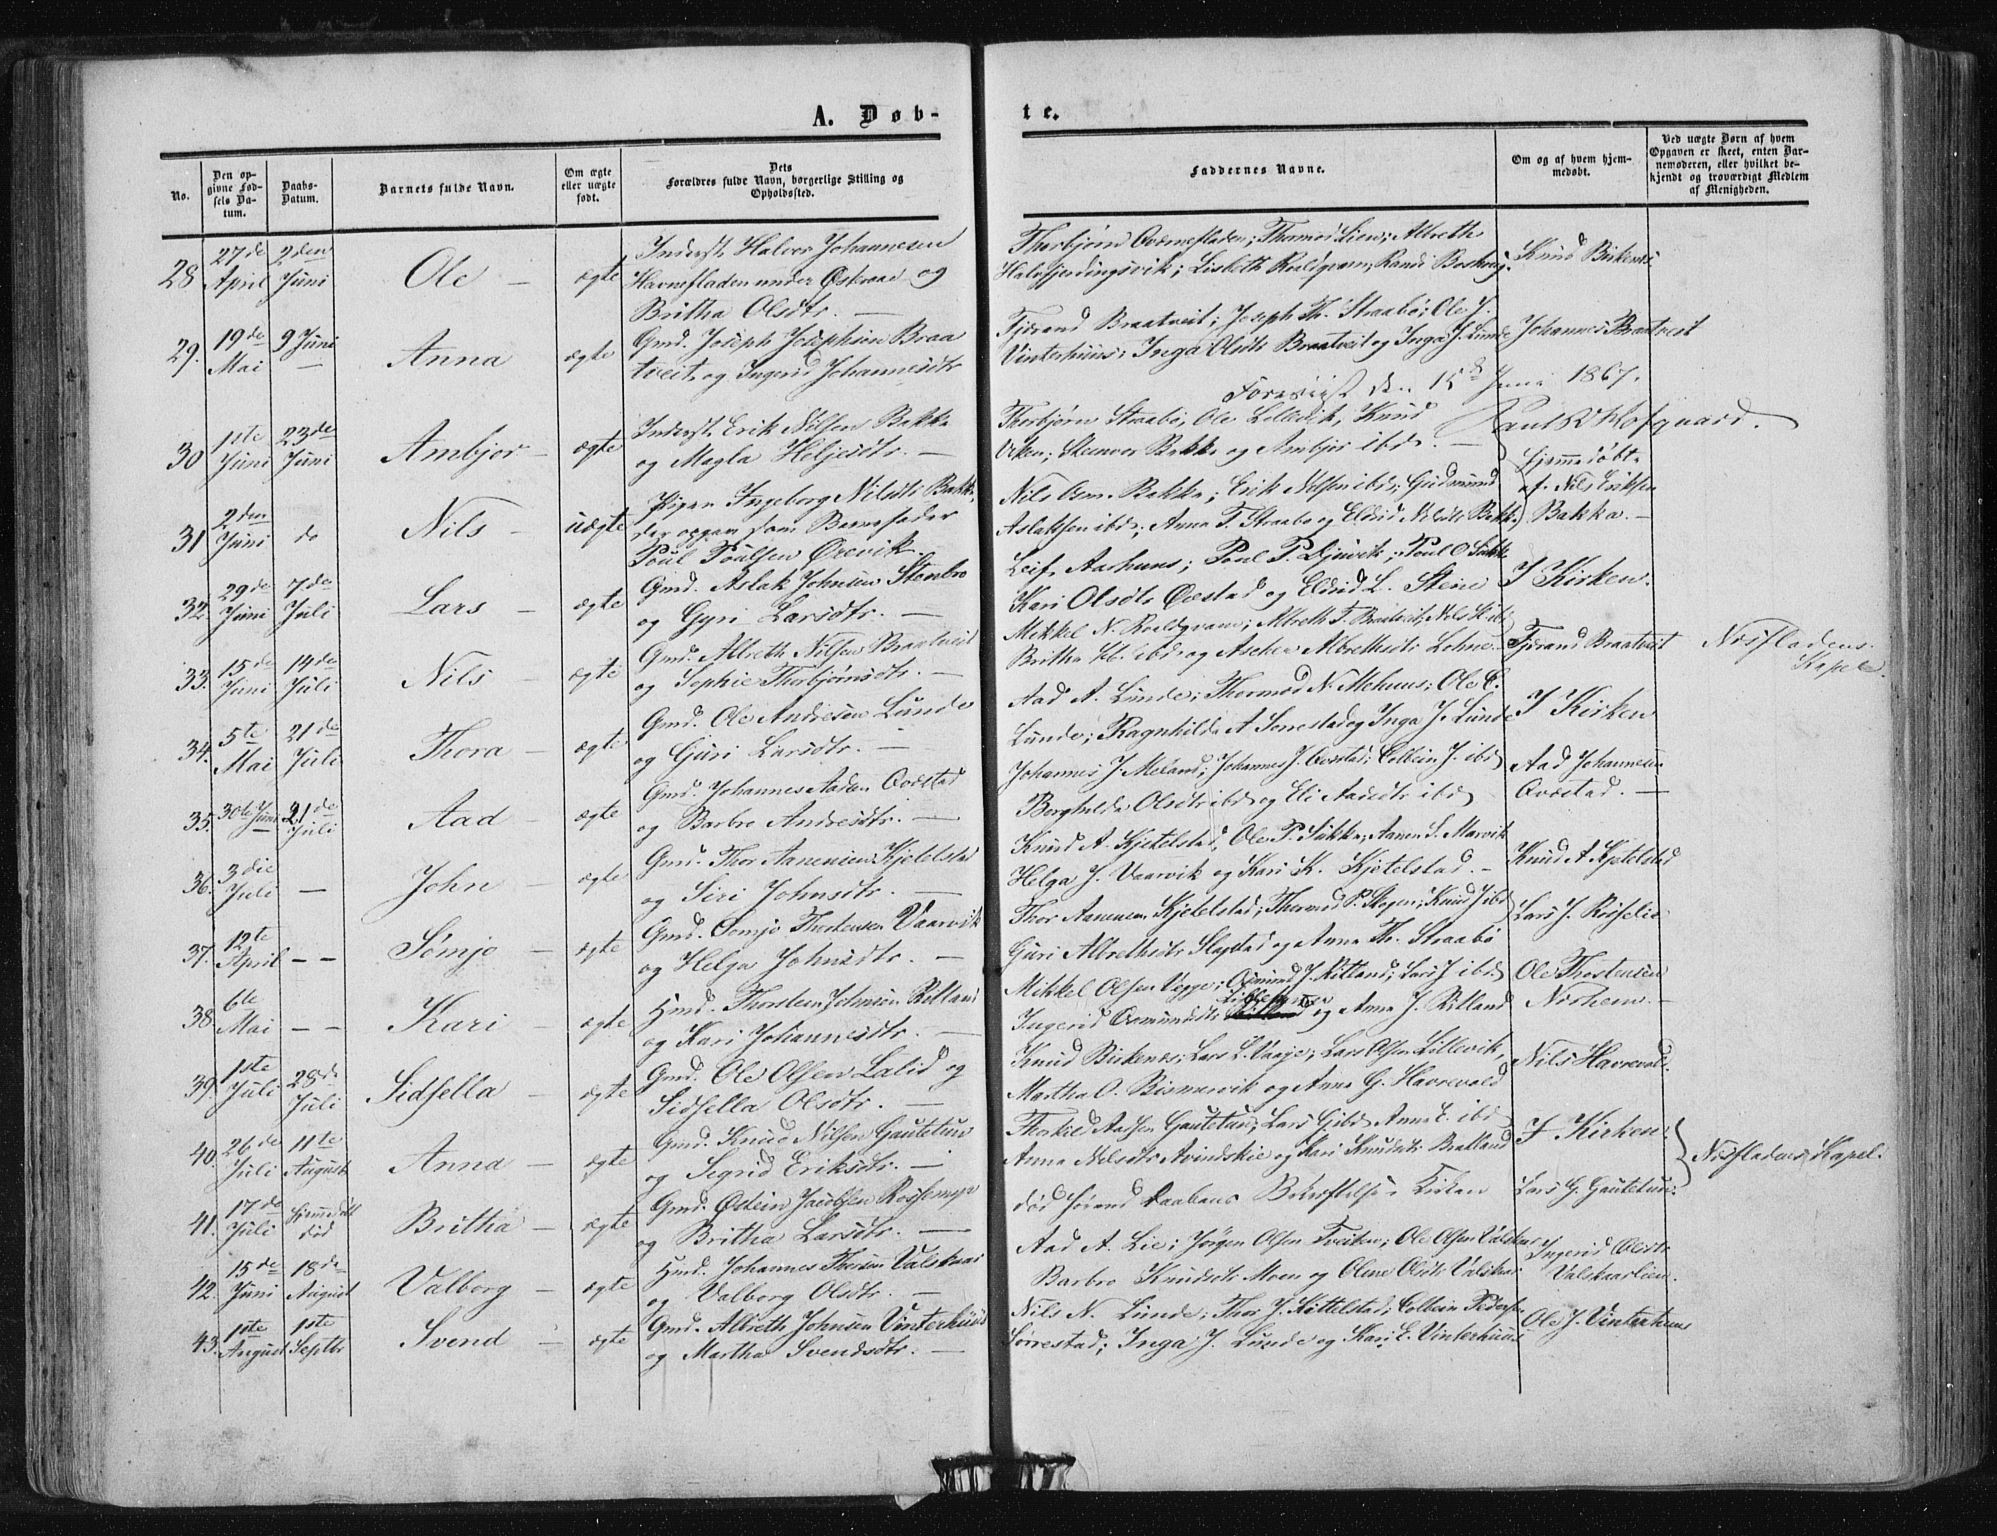 A. Døb-
te.
No.
Den op-
givne Fød-
sels Da-
tum.
Daabs-
Datum.
Barnets fulde Navn.
Om ægte
eller uægte
født.
Dets
Forældres fulde Navn, borgerlige Stilling og
Opholdssted.
Faddernes Navne.
Om og af hvem hjem-
medøbt.
Ved uægte Børn af hvem
Opgaven er skeet, enten Bar-
nemoderen, eller hvilket be-
kjendt og troværdigt Medlem
af Menigheden.
28 27de April 2den Juni Ole – ægte
Inderst Halvor Johannesen
Havnefladen under og
Britha Olsdtr. —
Thorbjørn Thormod Lien; Albreth
Lisbeth Roaldqvam; Randi
Knud Birkenes
29. 19de Mai 9 Juni — Anna ægte
Gmd. Joseph Josephsen Braa
tveit og Ingerid Johannesdtr
Tjerand Braatveit; Joseph Th. Straabø; Ole J.
Vinterhuus; Inga Olsdtr Braatveit og Inga J. Lunde
Johannes Braatveit
Foreviist den 15de Juni 1867.
30 1ste Juni 23de Juni Ambjor – ægte
Inderst Erik Nilsen Bakka
og Magla Heljesdtr. —
Thorbjørn Straabø, Ole Lillevik, Knud
Viken; Steenvor Bakka og Ambjør ibd. —
31 2den Juni do Nils – uægte
Pigen Ingeborg Nilsdtr Bakka,
der opgav som Barnefader
Poul Poulsen
Nils Osm. Bakka; Erik Nilsen ibd; Gudmund
Aslaksen ibd; Anna T. Straabø og Eldrid Nilsdtr Bakka
Hjemmedøbt
af Nils Eriksen
Bakka. —
32 29de Juni 7de Juli Lars – ægte
Gmd. Aslak Johnsen Stenbro
og Gyri Larsdtr. —
Leif Aarhuus; Poul P. Djuvik; Poul O. Sukka
Kari Olsdtr Qvæstad og Eldrid L. Steine
I Kirken.
33. 15de Juni 14de Juli Nils – ægte
Gmd. Albreth Nilsen Braatveit
og Sophie Thorbjørnsdtr. —
Mikkel N. Roaldqvam; Albreth T. Braatveit, Nils
Britha ibd og Albrethsdtr Lohne
Tjerand Braatveit
Næsfladens
Kapel.
34. 5te Mai 21de Juli Thora – ægte
Gmd. Ole Andresen Lunde
og Guri Larsdtr. —
Aad A. Lunde; Thormod N. Mehuus; Ole E.
Lunde; Ragnhilde A Sørrestad og Inga J. Lunde
I Kirken
35. 30te Juni 21de Juli Aad – ægte
Gmd. Johannes Aadsen Qvæstad
og Barbro Andresdtr. —
Johannes J. Meland; Johannes J. Qvæstad; Colbein J. ibd
Borghilda Olsdtr ibd og Eli Aadsdtr ibd
Aad Johannesen
Qvæstad. —
36. 3die Juli — John – ægte
Gmd. Thor Aanensen Kjetelstad
og Siri Johnsdtr. —
Knud A. Kjetelstad, Ole P. Sukka, Aanen S. Marvik
Helga J. Vaarvik og Kari K. Kjetelstad. –
Knud A Kjetelstad
37. 12te April – – Sømje – ægte
Gmd. Osmje Thorstensen Vaarvik
og Helga Johnsdtr. —
Thor Aanensen Kjetelstad; Thormod P. Skogen; Knud J ibd
Guri Albrethsdtr og Anna Th. Straabø
Lars J. Røsselie
38. 6te Mai – – Kari ægte
Hmd. Thorstein Johnsen Ritland
og Kari Johannesdtr. —
Mikkel Olsen Osmund J. Ritland; Lars J ibd
Ingerid Osmundsdtr og Anna J. Ritland
Ole Thorstensen
39. 1ste Juli 28de Juli Sidsella – ægte
Gmd. Ole Olsen Lalid og
Sidsella Olsdtr. —
Knud Birkenes; Lars L. Vaaje; Lars Olsen Lillevik,
Martha O. og Anna G. Havrevold
Nils Havrevold.
40. 26de Juli 11te August Anna – ægte
Gmd. Knud Nilsen Gautetun
og Segrid Eriksdtr. —
Thorkild Aadsen Gautetun; Lars G ibd Anna E. ibd
Anna Nilsdtr Avindskie og Kari Knudsdtr Bratland
I Kirken.
Næsfladens Kapel.
41. 17de Juli hjemmedøbt død Britha – ægte
Gmd. Østein Jacobsen
og Britha Larsdtr. —
død førend Daabens Bekræftelse i Kirken
Lars G. Gautetun.
42. 15de Juni 18de August Valborg – ægte
Hmd. Johannes Thorsen Valskaar
og Valborg Olsdtr. —
Aad A. Lie; Jørgen Olsen Tveiten; Ole Olsen Valskar
Barbro Knudsdtr Moen og Oline Olsdtr Valskar
Ingerid Olsdtr
Valskaarlien.
43. 1ste August 1ste Septbr Svend – ægte
Gmd. Albreth Johnsen Vinterhuus
og Martha Svendsdtr. —
Nils N. Lunde; Thor J. Kittelstad; Colbein Peders.
Sørrestad; Inga J. Lunde og Kari E. Vinterhuus
Ole J. Vinterhuus